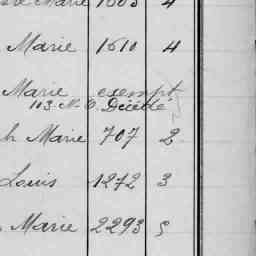 Marie 1603 4
Marie 1610 4
Marie exempt
113. N. O. Décédé
h Marie 707 2
Louis 1272 3
Marie 2293 5